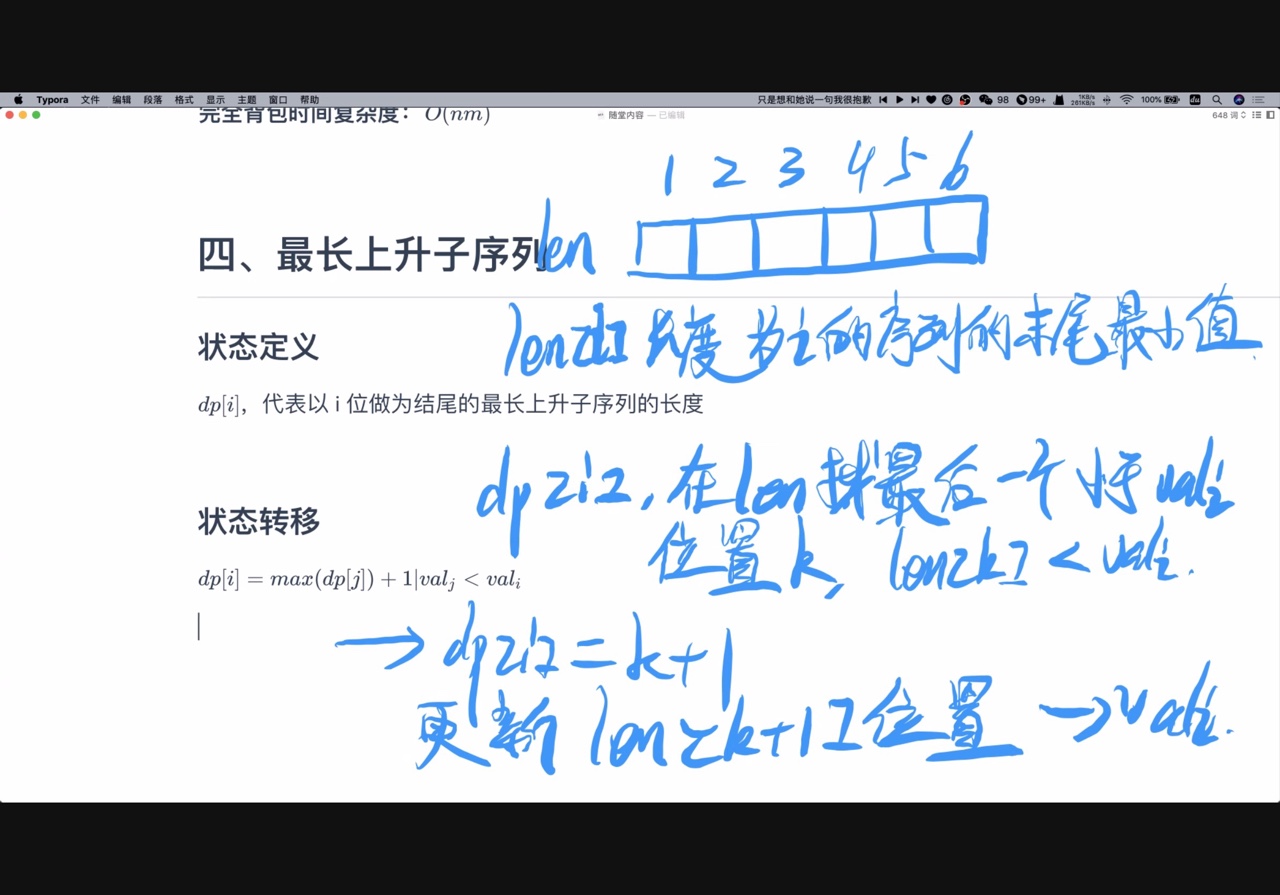 Typora 文件 编辑 段落 格式 显示 主题 窗口 帮助 只是想和她说一句我很抱歉 98 99+ 1KB/s 261KB/s 100%
随堂内容 — 已编辑 648 词
完全背包时间复杂度：O(nm)
1 2 3 4 5 6
len
四、最长上升子序列
len[i] 长度为i的序列的末尾最小值.
状态定义
dp[i]，代表以 i 位做为结尾的最长上升子序列的长度
dp[i], 在len找最后一个小于vali
位置k, len[k] < vali.
状态转移
dp[i] = max(dp[j]) + 1|val_j < val_i
→ dp[i] = k+1
更新 len[k+1]位置 → vali.